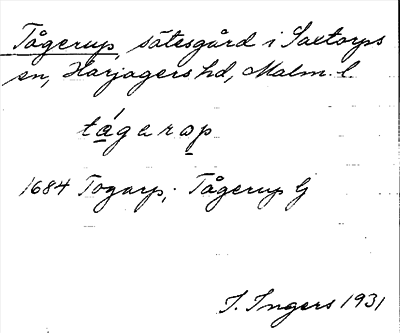 Tågerup, sätesgård i Saxtorps
sn, Harjagers hd, Malm. l.
tágarop
1684 Togarp; Tågerup G
I. Ingers 1931